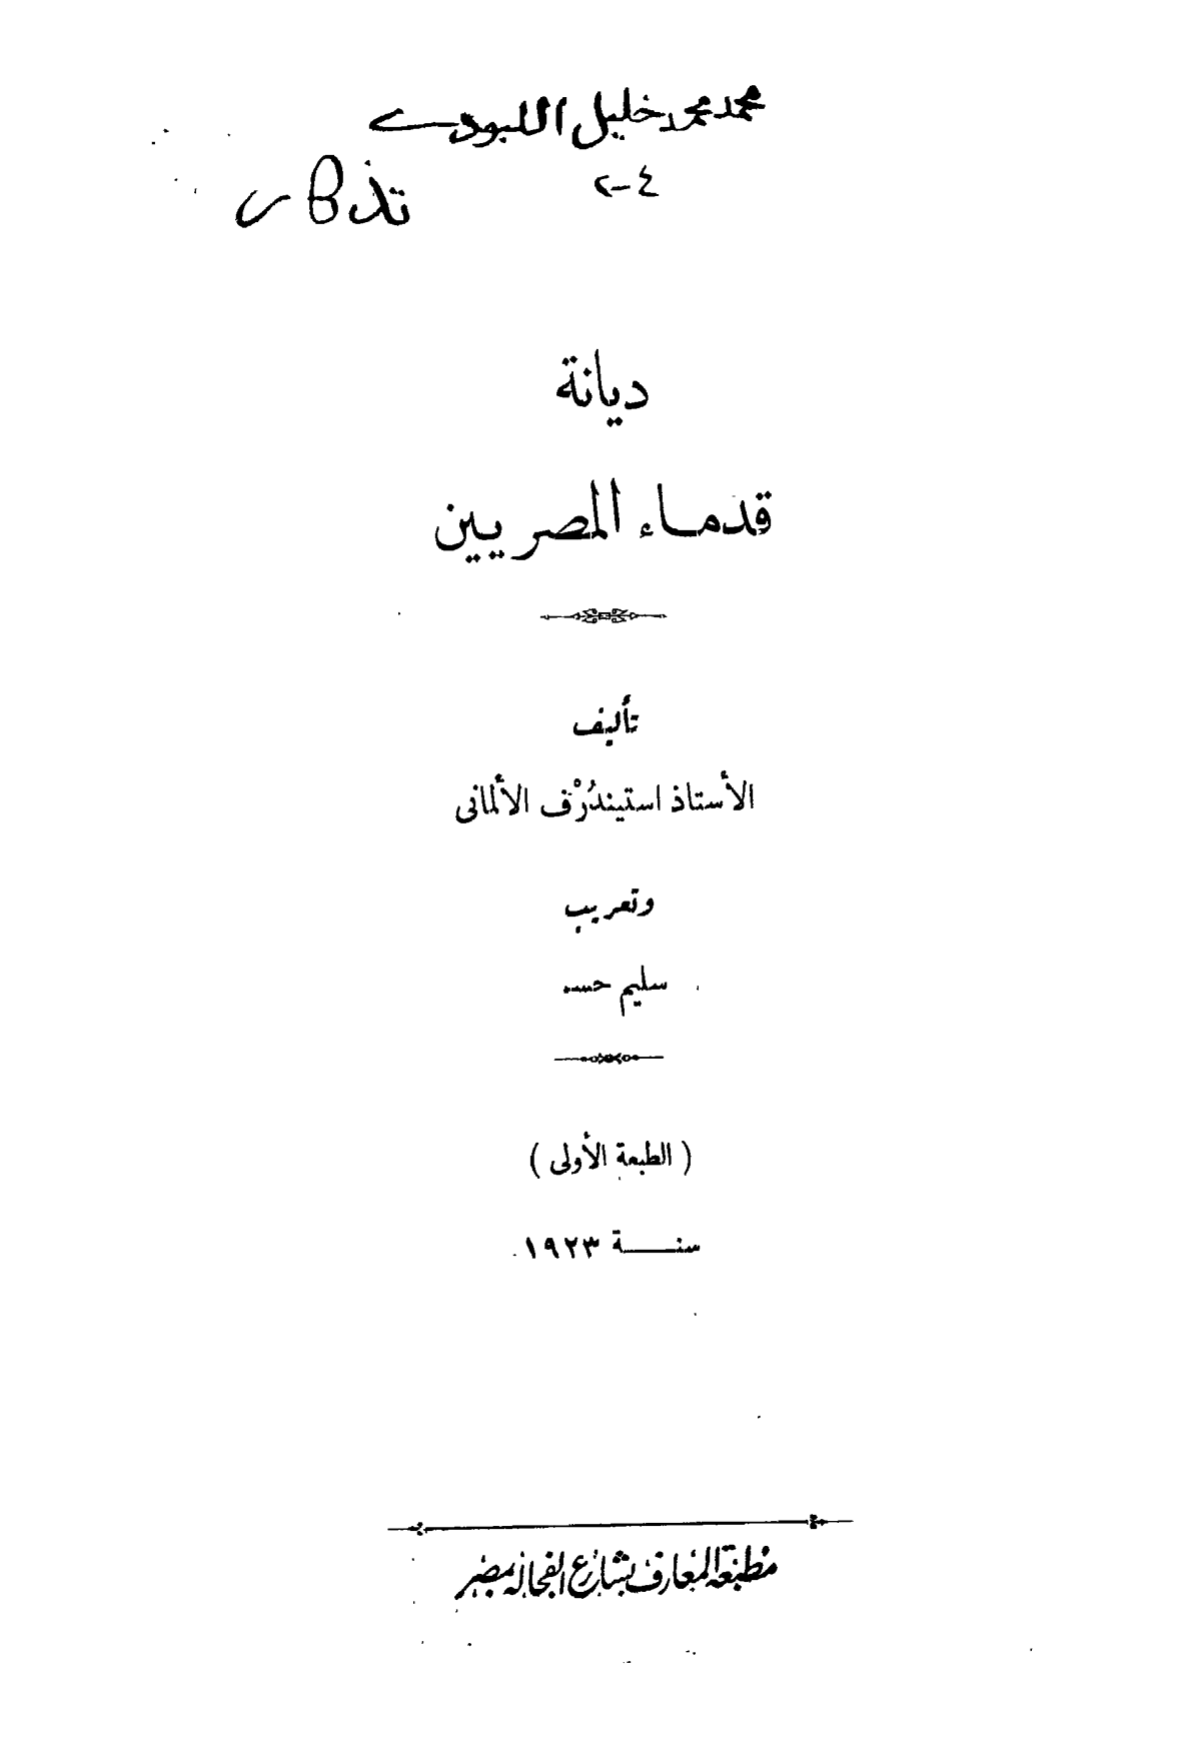 محمد محمد خليل اللبودى
٤-٢
تذكار
ديانة
قدماء المصريين
تأليف
الأستاذ استيندُرْف الألمانى
وتعريب
سليم حسن
( الطبعة الأولى )
سنة ١٩٢٣
مطبعة المعارف بشارع الفجالة بمصر